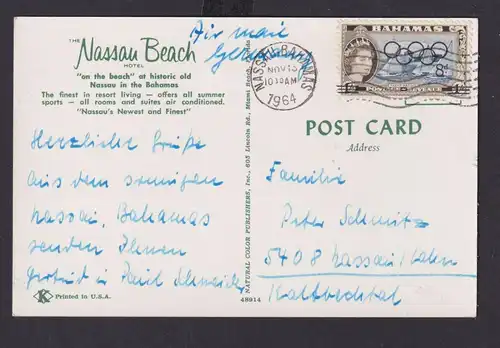 THE
Nassau Beach
HOTEL
"on the beach" at historic old
Nassau in the Bahamas
The finest in resort living — offers all summer
sports — all rooms and suites air conditioned.
"Nassau's Newest and Finest"
Air mail
Germany
NASSAU · BAHAMAS
NOV 13
10 AM
1964
BAHAMAS
8d
POST CARD
Address
Herzliche Grüße
aus dem sonnigen
Nassau, Bahamas
senden Ihnen
Gertrud u. Paul Schneider
Familie
Peter Schmitz
5408 Nassau/Lahn
Kaltbachtal
NATURAL COLOR PUBLISHERS, INC., 605 Lincoln Rd., Miami Beach, Florida
K Printed in U.S.A.
48914